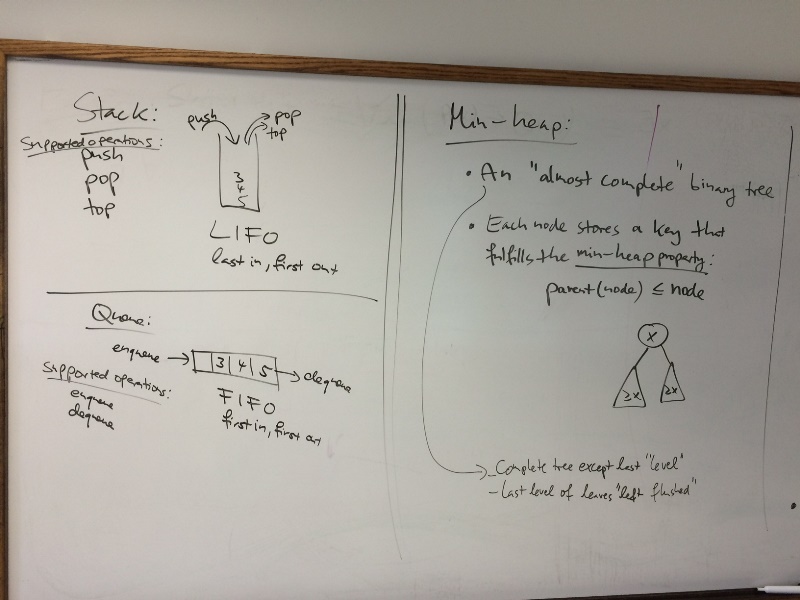 Stack:
Supported operations:
push
pop
top
push
pop
top
3
4
5
LIFO
last in, first out
Queue:
enqueue
3 4 5
dequeue
Supported operations:
enqueue
dequeue
FIFO
first in, first out
Min-heap:
• An "almost complete" binary tree
• Each node stores a key that
fulfills the min-heap property:
parent(node) ≤ node
x
≥x ≥x
- Complete tree except last "level"
- Last level of leaves "left flushed"